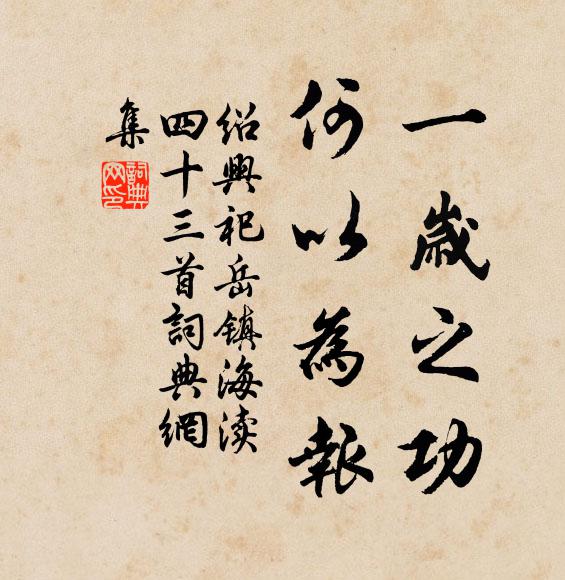 一歲之功
何以為報
紹興祀岳鎮海渎
四十三首詞典網
集
詞典
网印